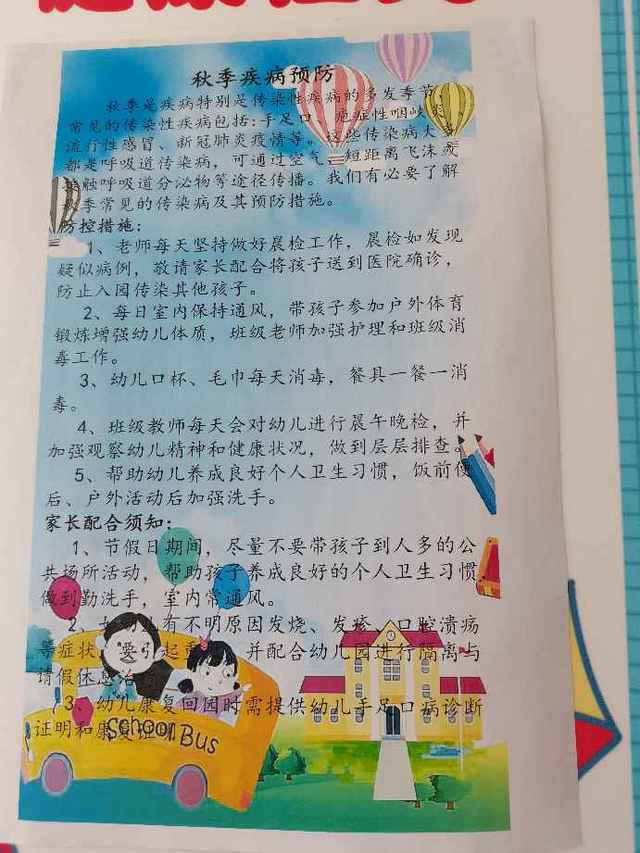 秋季疾病预防
秋季是疾病特别是传染性疾病的多发季节，
常见的传染性疾病包括:手足口、疱症性咽峡炎、
流行性感冒、新冠肺炎疫情等。这些传染病大多
都是呼吸道传染病，可通过空气、短距离飞沫或
接触呼吸道分泌物等途径传播。我们有必要了解
秋季常见的传染病及其预防措施。
防控措施：
1、老师每天坚持做好晨检工作，晨检如发现
疑似病例，敬请家长配合将孩子送到医院确诊，
防止入园传染其他孩子。
2、每日室内保持通风，带孩子参加户外体育
锻炼增强幼儿体质，班级老师加强护理和班级消
毒工作。
3、幼儿口杯、毛巾每天消毒，餐具一餐一消
毒。
4、班级教师每天会对幼儿进行晨午晚检，并
加强观察幼儿精神和健康状况，做到层层排查。
5、帮助幼儿养成良好个人卫生习惯，饭前便
后、户外活动后加强洗手。
家长配合须知：
1、节假日期间，尽量不要带孩子到人多的公
共场所活动，帮助孩子养成良好的个人卫生习惯，
做到勤洗手，室内常通风。
2、如幼儿有不明原因发烧、发疹、口腔溃疡
等症状，要引起重视，并配合幼儿园进行隔离与
请假休息治
3、幼儿康复回园时需提供幼儿手足口病诊断
证明和康复证明
School Bus